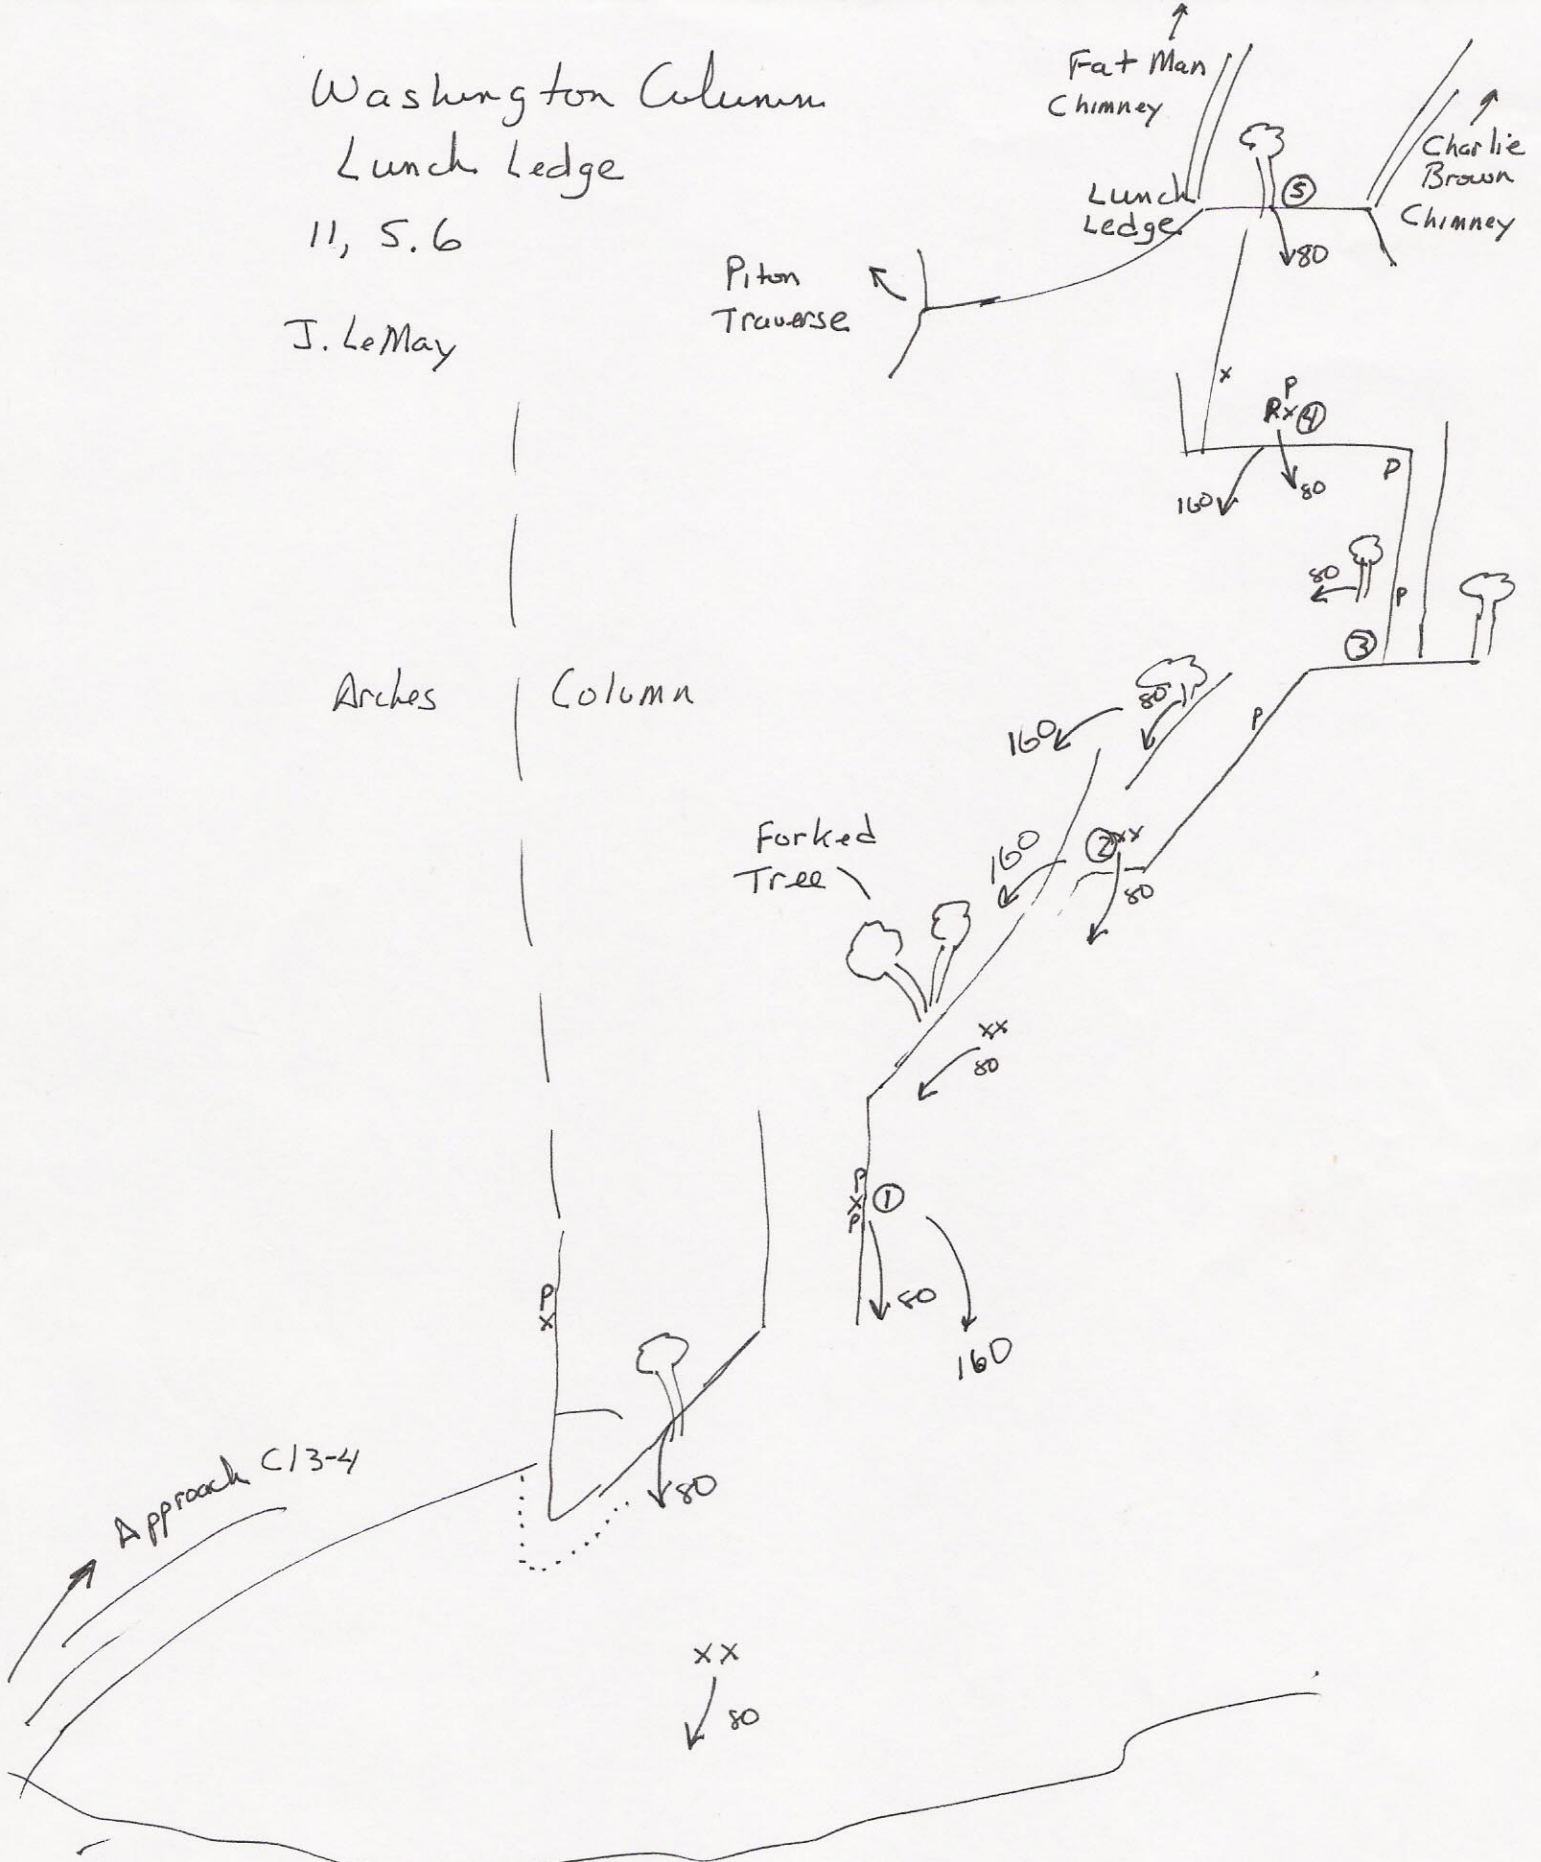 Washington Column
Lunch Ledge
11, 5.6
J. LeMay
Fat Man
Chimney
Charlie
Brown
Chimney
Lunch
Ledge
5
80
Piton
Traverse
x
P
Rx 4
160
80
P
80
P
3
Arches
Column
80
160
P
Forked
Tree
160
2 xx
80
xx
80
P
x
P
1
80
160
P
x
80
Approach C13-4
xx
80